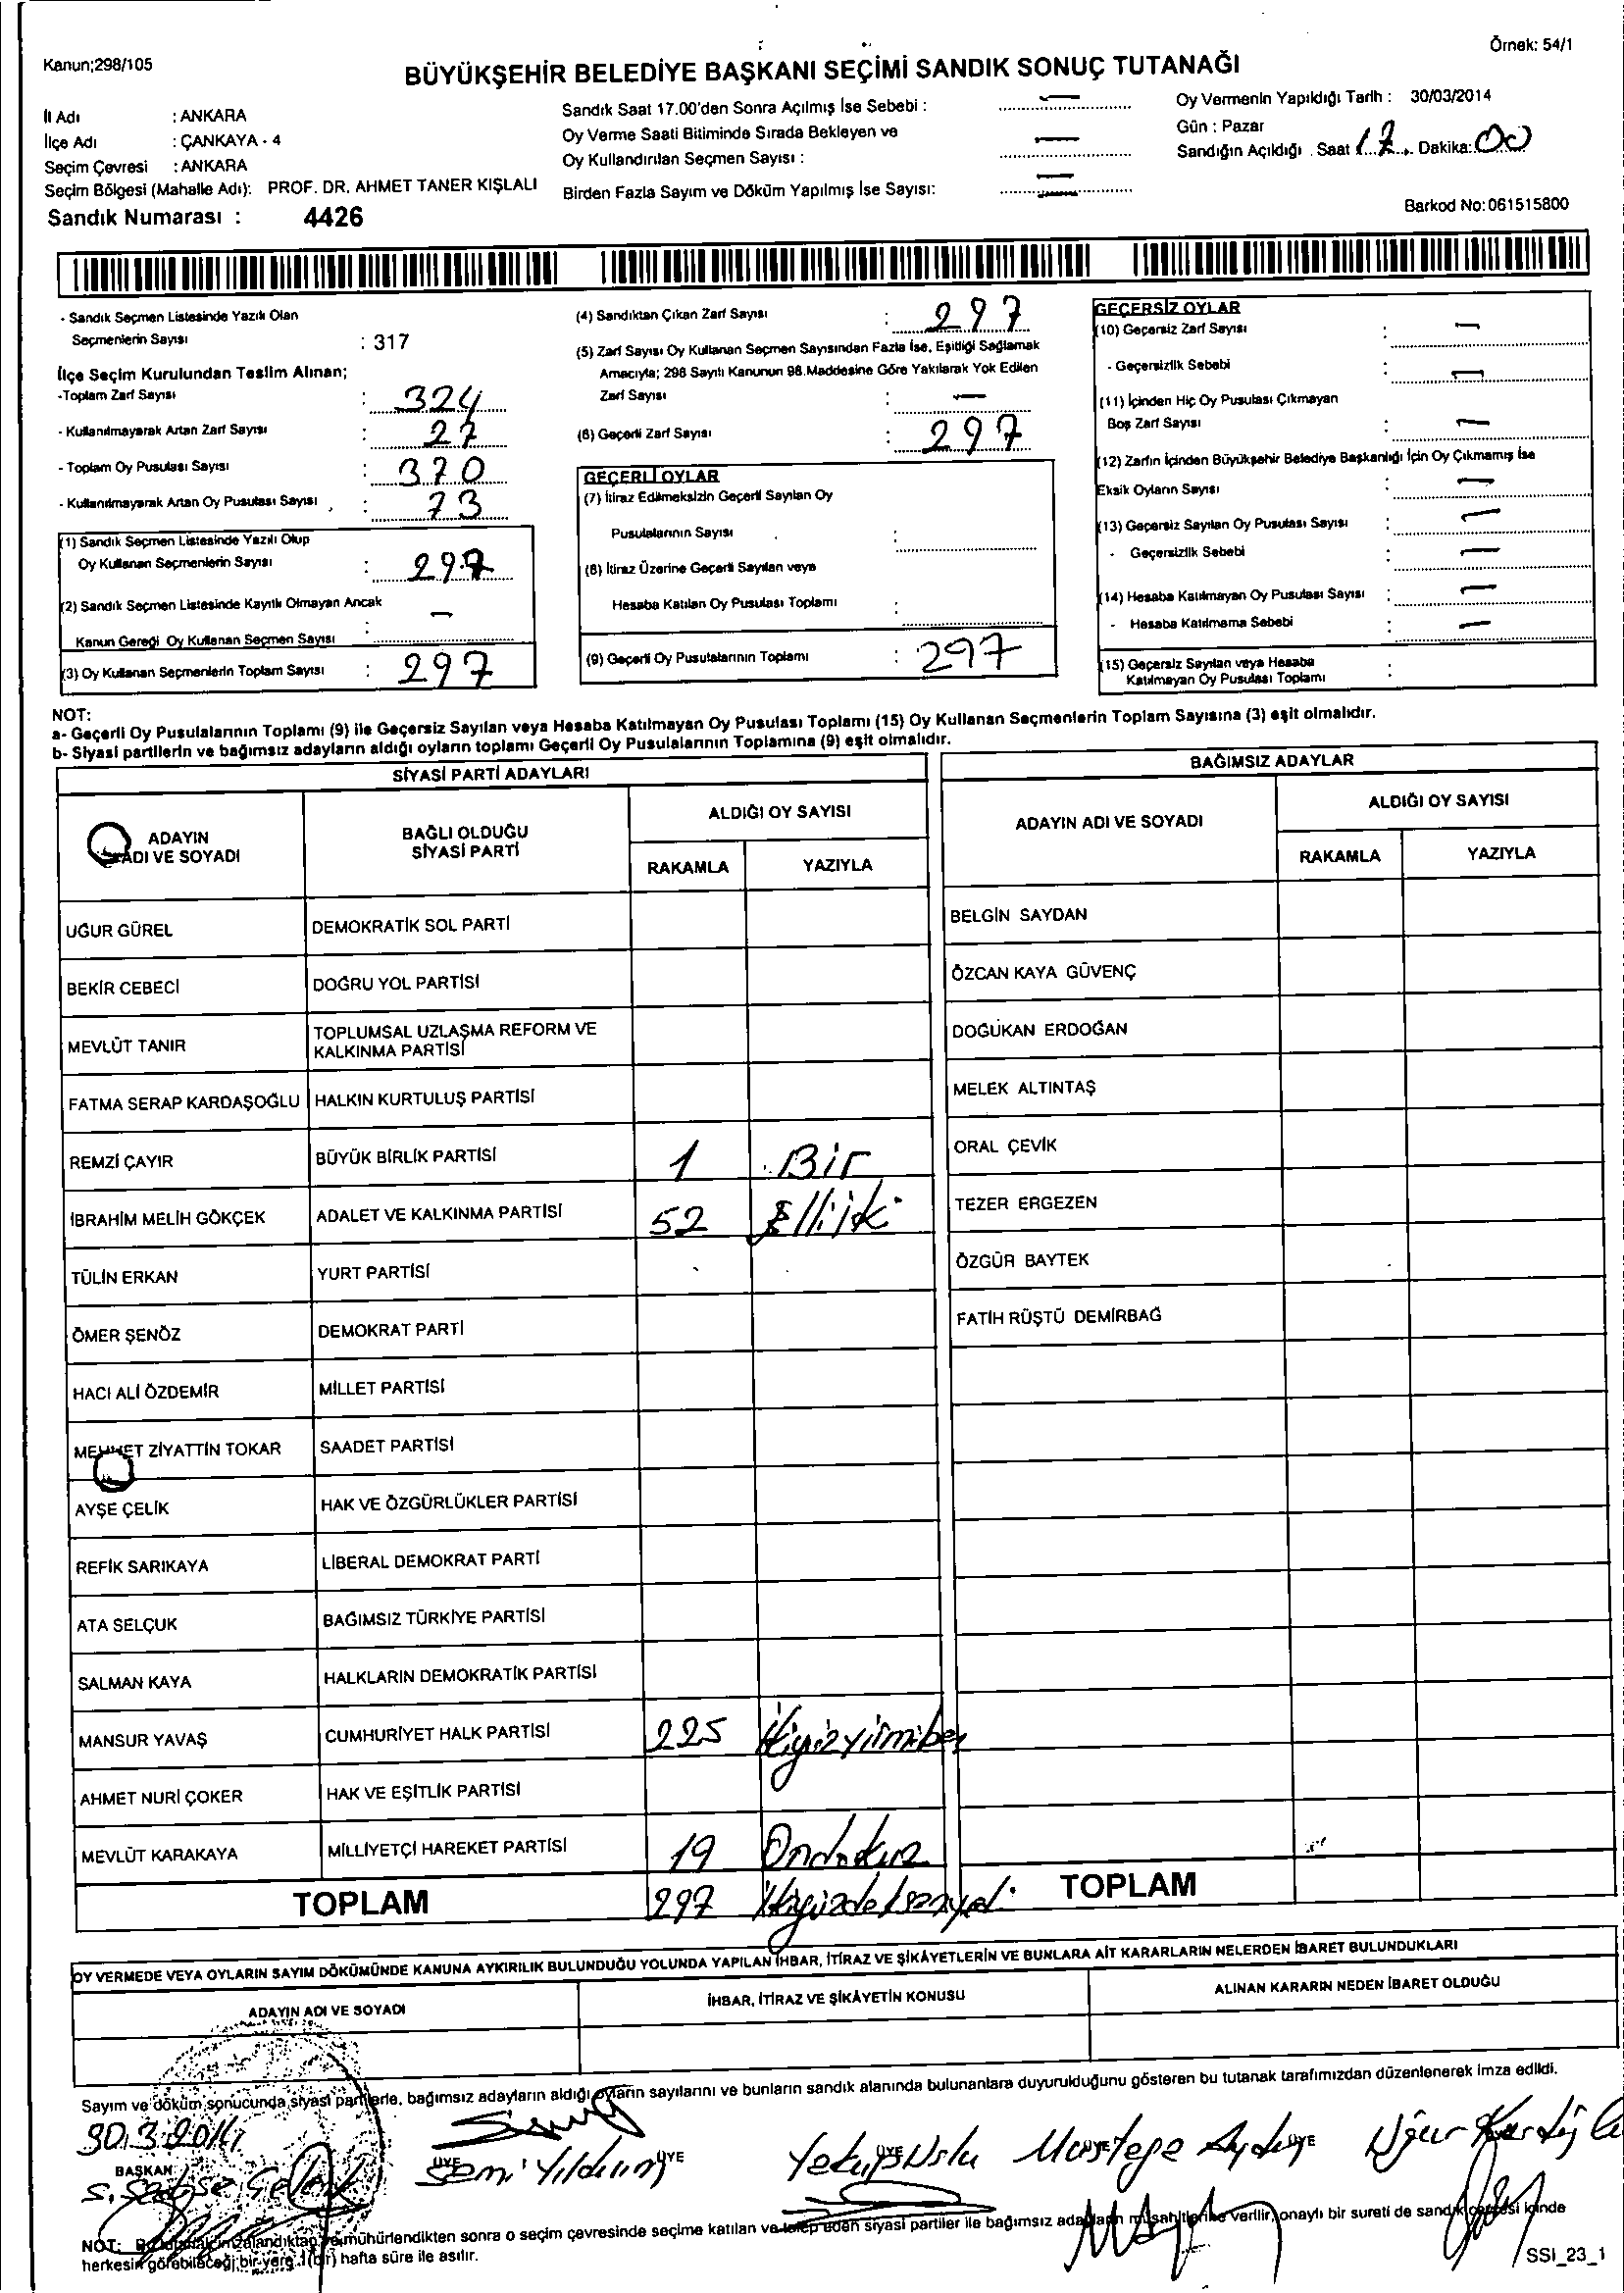 Örnek: 54/1
Kanun;298/105
BÜYÜKŞEHİR BELEDİYE BAŞKANI SEÇİMİ SANDIK SONUÇ TUTANAĞI
İl Adı : ANKARA
İlçe Adı : ÇANKAYA - 4
Seçim Çevresi : ANKARA
Seçim Bölgesi (Mahalle Adı): PROF. DR. AHMET TANER KIŞLALI
Sandık Numarası : 4426
Sandık Saat 17.00'den Sonra Açılmış İse Sebebi : —
Oy Verme Saati Bitiminde Sırada Bekleyen ve
Oy Kullandırılan Seçmen Sayısı : —
Birden Fazla Sayım ve Döküm Yapılmış İse Sayısı: —
Oy Vermenin Yapıldığı Tarih : 30/03/2014
Gün : Pazar
Sandığın Açıldığı . Saat 17 Dakika: 00
Barkod No:061515800
- Sandık Seçmen Listesinde Yazılı Olan
Seçmenlerin Sayısı : 317
İlçe Seçim Kurulundan Teslim Alınan;
-Toplam Zarf Sayısı : 324
- Kullanılmayarak Artan Zarf Sayısı : 27
- Toplam Oy Pusulası Sayısı : 370
- Kullanılmayarak Artan Oy Pusulası Sayısı : 73
(1) Sandık Seçmen Listesinde Yazılı Olup
Oy Kullanan Seçmenlerin Sayısı : 297
(2) Sandık Seçmen Listesinde Kayıtlı Olmayan Ancak
Kanun Gereği Oy Kullanan Seçmen Sayısı : —
(3) Oy Kullanan Seçmenlerin Toplam Sayısı : 297
(4) Sandıktan Çıkan Zarf Sayısı : 297
(5) Zarf Sayısı Oy Kullanan Seçmen Sayısından Fazla İse, Eşitliği Sağlamak
Amacıyla; 298 Sayılı Kanunun 98.Maddesine Göre Yakılarak Yok Edilen
Zarf Sayısı : —
(6) Geçerli Zarf Sayısı : 297
GEÇERLİ OYLAR
(7) İtiraz Edilmeksizin Geçerli Sayılan Oy
Pusulalarının Sayısı :
(8) İtiraz Üzerine Geçerli Sayılan veya
Hesaba Katılan Oy Pusulası Toplamı :
(9) Geçerli Oy Pusulalarının Toplamı : 297
GEÇERSİZ OYLAR
(10) Geçersiz Zarf Sayısı : —
- Geçersizlik Sebebi : —
(11) İçinden Hiç Oy Pusulası Çıkmayan
Boş Zarf Sayısı : —
(12) Zarfın İçinden Büyükşehir Belediye Başkanlığı İçin Oy Çıkmamış İse
Eksik Oyların Sayısı : —
(13) Geçersiz Sayılan Oy Pusulası Sayısı : —
- Geçersizlik Sebebi : —
(14) Hesaba Katılmayan Oy Pusulası Sayısı : —
- Hesaba Katılmama Sebebi : —
(15) Geçersiz Sayılan veya Hesaba
Katılmayan Oy Pusulası Toplamı :
NOT:
a- Geçerli Oy Pusulalarının Toplamı (9) ile Geçersiz Sayılan veya Hesaba Katılmayan Oy Pusulası Toplamı (15) Oy Kullanan Seçmenlerin Toplam Sayısına (3) eşit olmalıdır.
b- Siyasi partilerin ve bağımsız adayların aldığı oyların toplamı Geçerli Oy Pusulalarının Toplamına (9) eşit olmalıdır.
SİYASİ PARTİ ADAYLARI
ADAYIN ADI VE SOYADI
BAĞLI OLDUĞU SİYASİ PARTİ
ALDIĞI OY SAYISI
RAKAMLA YAZIYLA
UĞUR GÜREL DEMOKRATİK SOL PARTİ
BEKİR CEBECİ DOĞRU YOL PARTİSİ
MEVLÜT TANIR TOPLUMSAL UZLAŞMA REFORM VE
KALKINMA PARTİSİ
FATMA SERAP KARDAŞOĞLU HALKIN KURTULUŞ PARTİSİ
REMZİ ÇAYIR BÜYÜK BİRLİK PARTİSİ 1 Bir
İBRAHİM MELİH GÖKÇEK ADALET VE KALKINMA PARTİSİ 52 Elliiki
TÜLİN ERKAN YURT PARTİSİ
ÖMER ŞENÖZ DEMOKRAT PARTİ
HACI ALİ ÖZDEMİR MİLLET PARTİSİ
MEHMET ZİYATTİN TOKAR SAADET PARTİSİ
AYŞE ÇELİK HAK VE ÖZGÜRLÜKLER PARTİSİ
REFİK SARIKAYA LİBERAL DEMOKRAT PARTİ
ATA SELÇUK BAĞIMSIZ TÜRKİYE PARTİSİ
SALMAN KAYA HALKLARIN DEMOKRATİK PARTİSİ
MANSUR YAVAŞ CUMHURİYET HALK PARTİSİ 225 İkiyüzyirmibeş
AHMET NURİ ÇOKER HAK VE EŞİTLİK PARTİSİ
MEVLÜT KARAKAYA MİLLİYETÇİ HAREKET PARTİSİ 19 Ondokuz
TOPLAM 297 İkiyüzdoksanyedi
BAĞIMSIZ ADAYLAR
ADAYIN ADI VE SOYADI
ALDIĞI OY SAYISI
RAKAMLA YAZIYLA
BELGİN SAYDAN
ÖZCAN KAYA GÜVENÇ
DOĞUKAN ERDOĞAN
MELEK ALTINTAŞ
ORAL ÇEVİK
TEZER ERGEZEN
ÖZGÜR BAYTEK
FATİH RÜŞTÜ DEMİRBAĞ
TOPLAM
OY VERMEDE VEYA OYLARIN SAYIM DÖKÜMÜNDE KANUNA AYKIRILIK BULUNDUĞU YOLUNDA YAPILAN İHBAR, İTİRAZ VE ŞİKÂYETLERİN VE BUNLARA AİT KARARLARIN NELERDEN İBARET BULUNDUKLARI
ADAYIN ADI VE SOYADI
İHBAR, İTİRAZ VE ŞİKÂYETİN KONUSU
ALINAN KARARIN NEDEN İBARET OLDUĞU
Sayım ve döküm sonucunda siyasi partilerle, bağımsız adayların aldığı oyların sayılarını ve bunların sandık alanında bulunanlara duyurulduğunu gösteren bu tutanak tarafımızdan düzenlenerek imza edildi.
30.3.2014
BAŞKAN ÜYE ÜYE ÜYE ÜYE ÜYE
Semi Yıldırım Yakup Uslu Mustafa Aydın Uğur
NOT: Bu tutanak imzalandıktan ve mühürlendikten sonra o seçim çevresinde seçime katılan ve talep eden siyasi partiler ile bağımsız adayların müşahitlerine verilir, onaylı bir sureti de sandık çevresi içinde
herkesin görebileceği bir yere 1 (bir) hafta süre ile asılır.
SSI_23_1